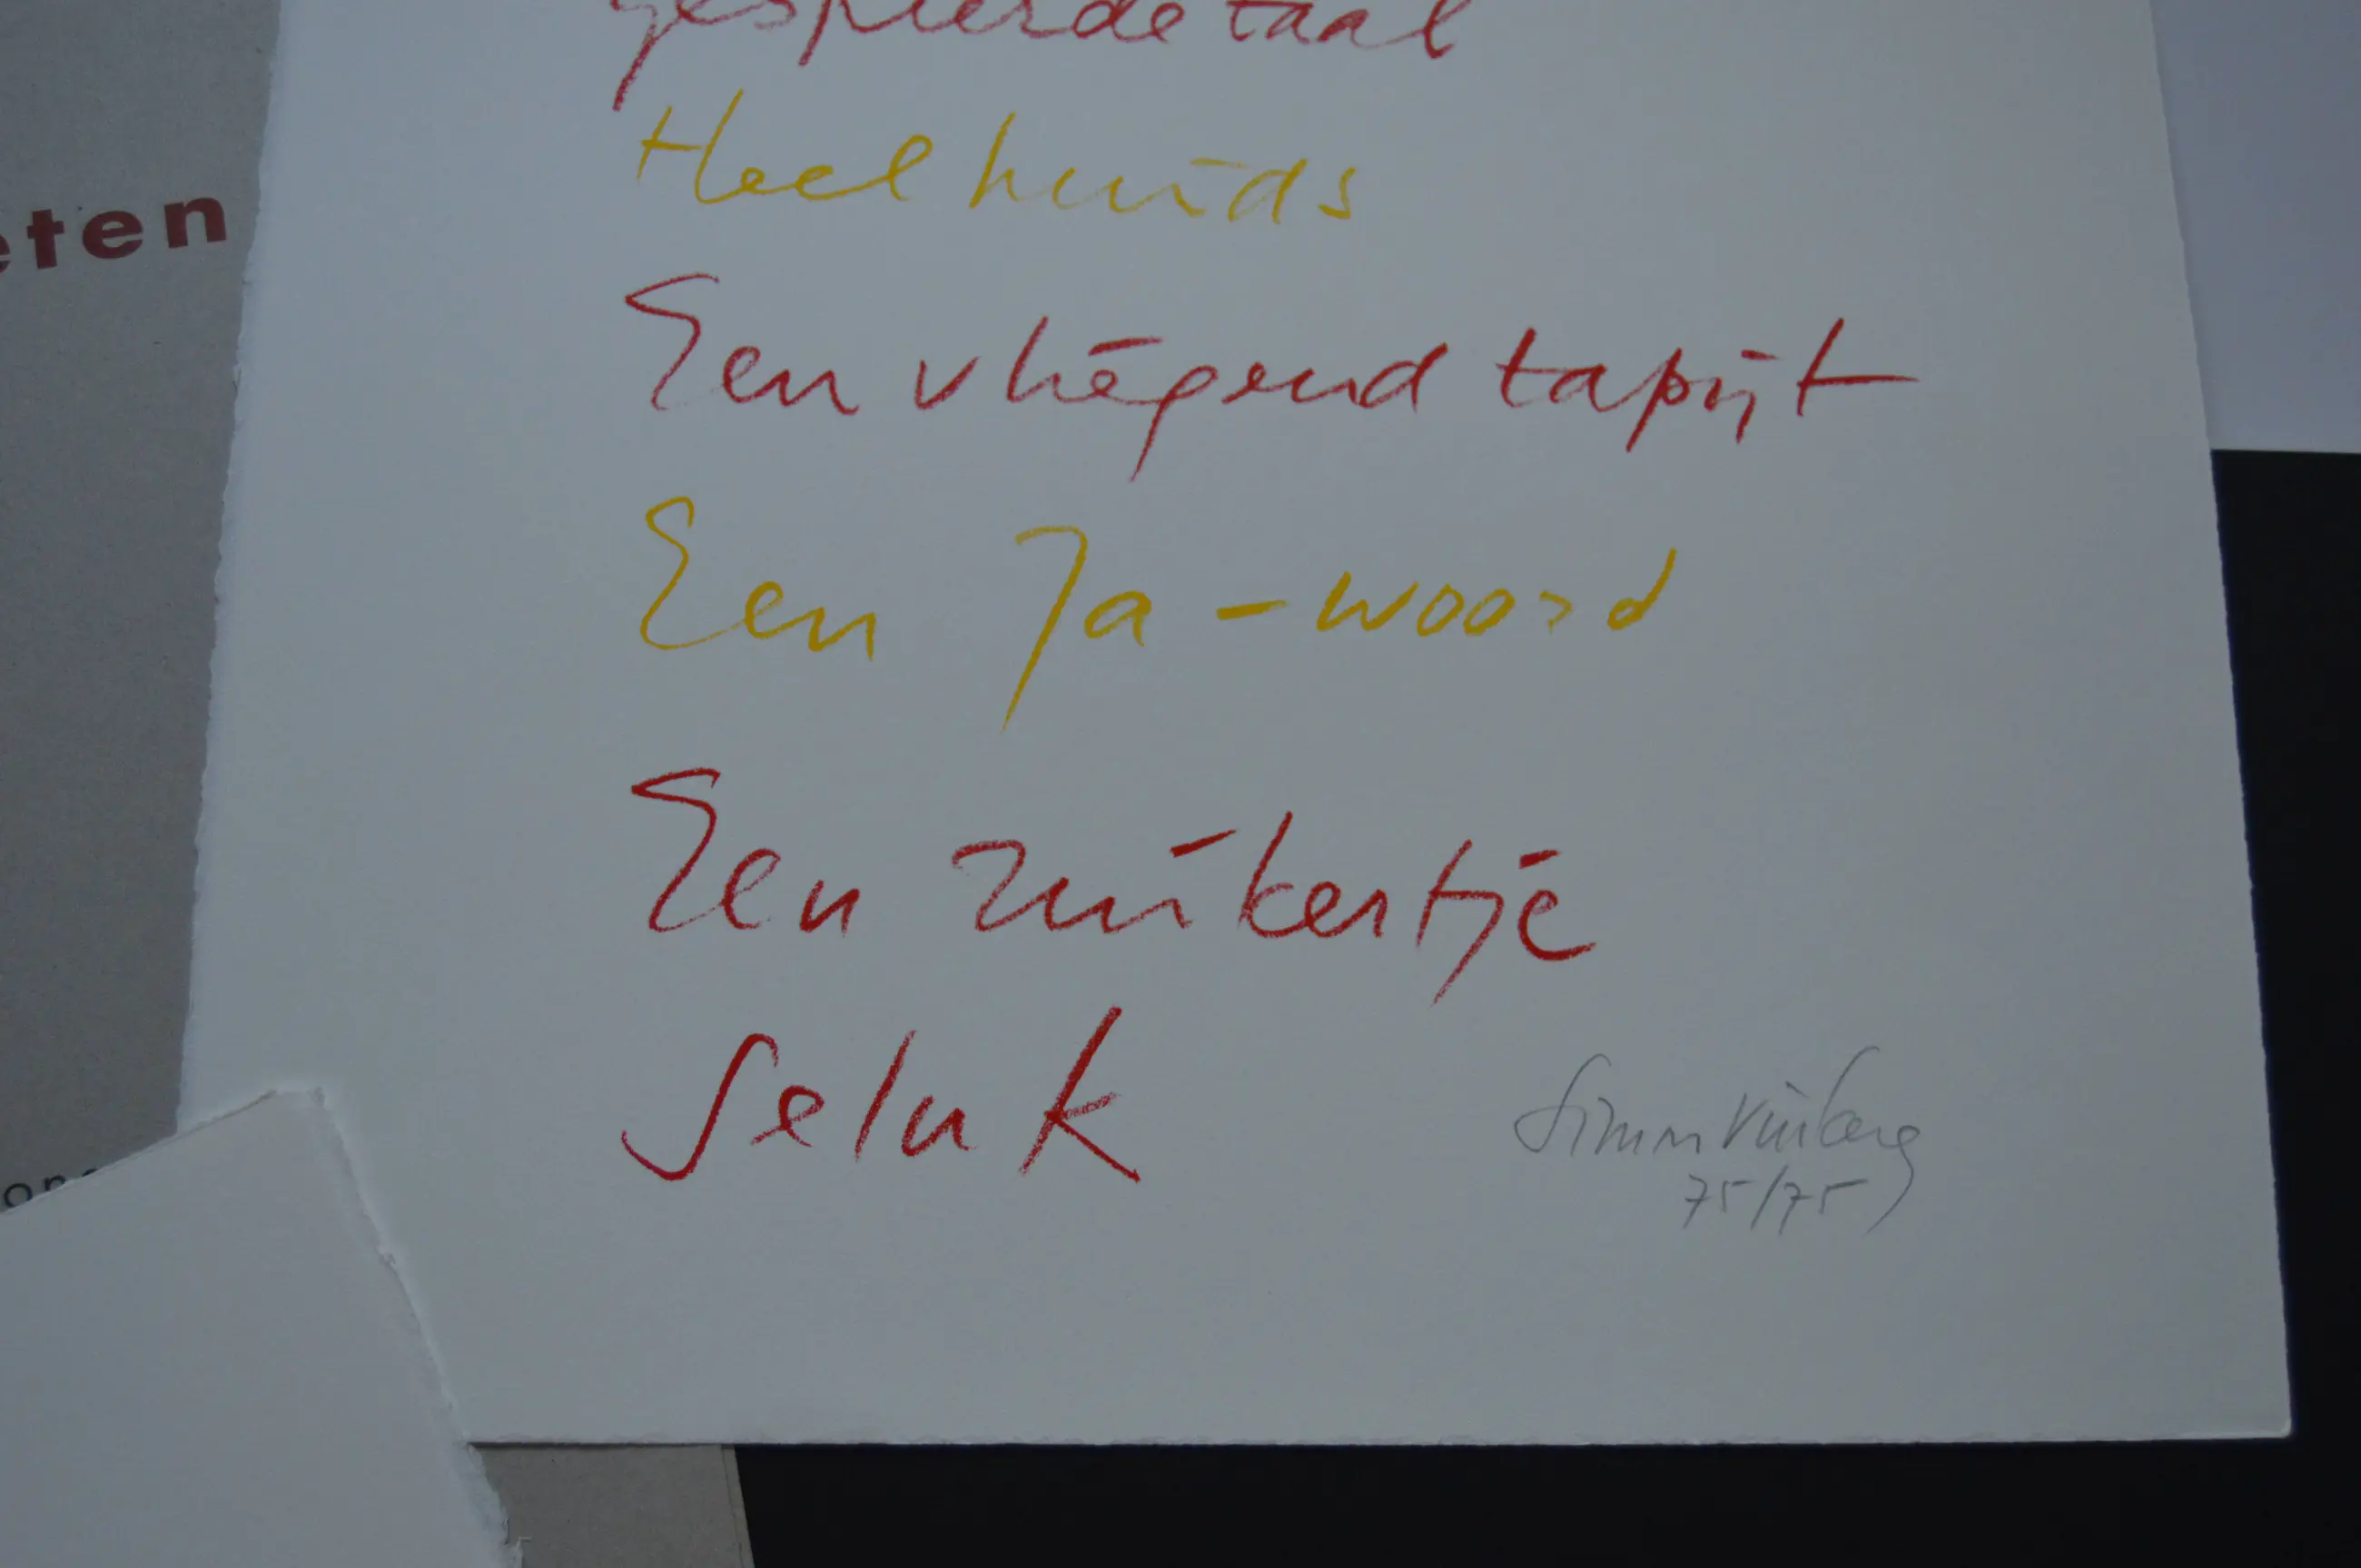 gespierde taal
Heelhuids
Een vliegend tapijt
Een Ja-woord
Een zuikertje
geluk
Simon Vinkenoog
75/75
eten